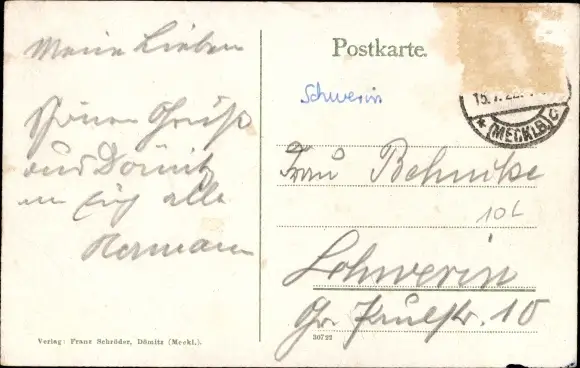 Meine Lieben
Schönen Gruß
aus Dömitz
an Euch alle
Hermann
Postkarte.
Schwerin
15.7.22.
* (MECKLB) C
Frau Behncke
10L
Schwerin
Gr. Paulstr. 10
Verlag: Franz Schröder, Dömitz (Meckl.).
30722